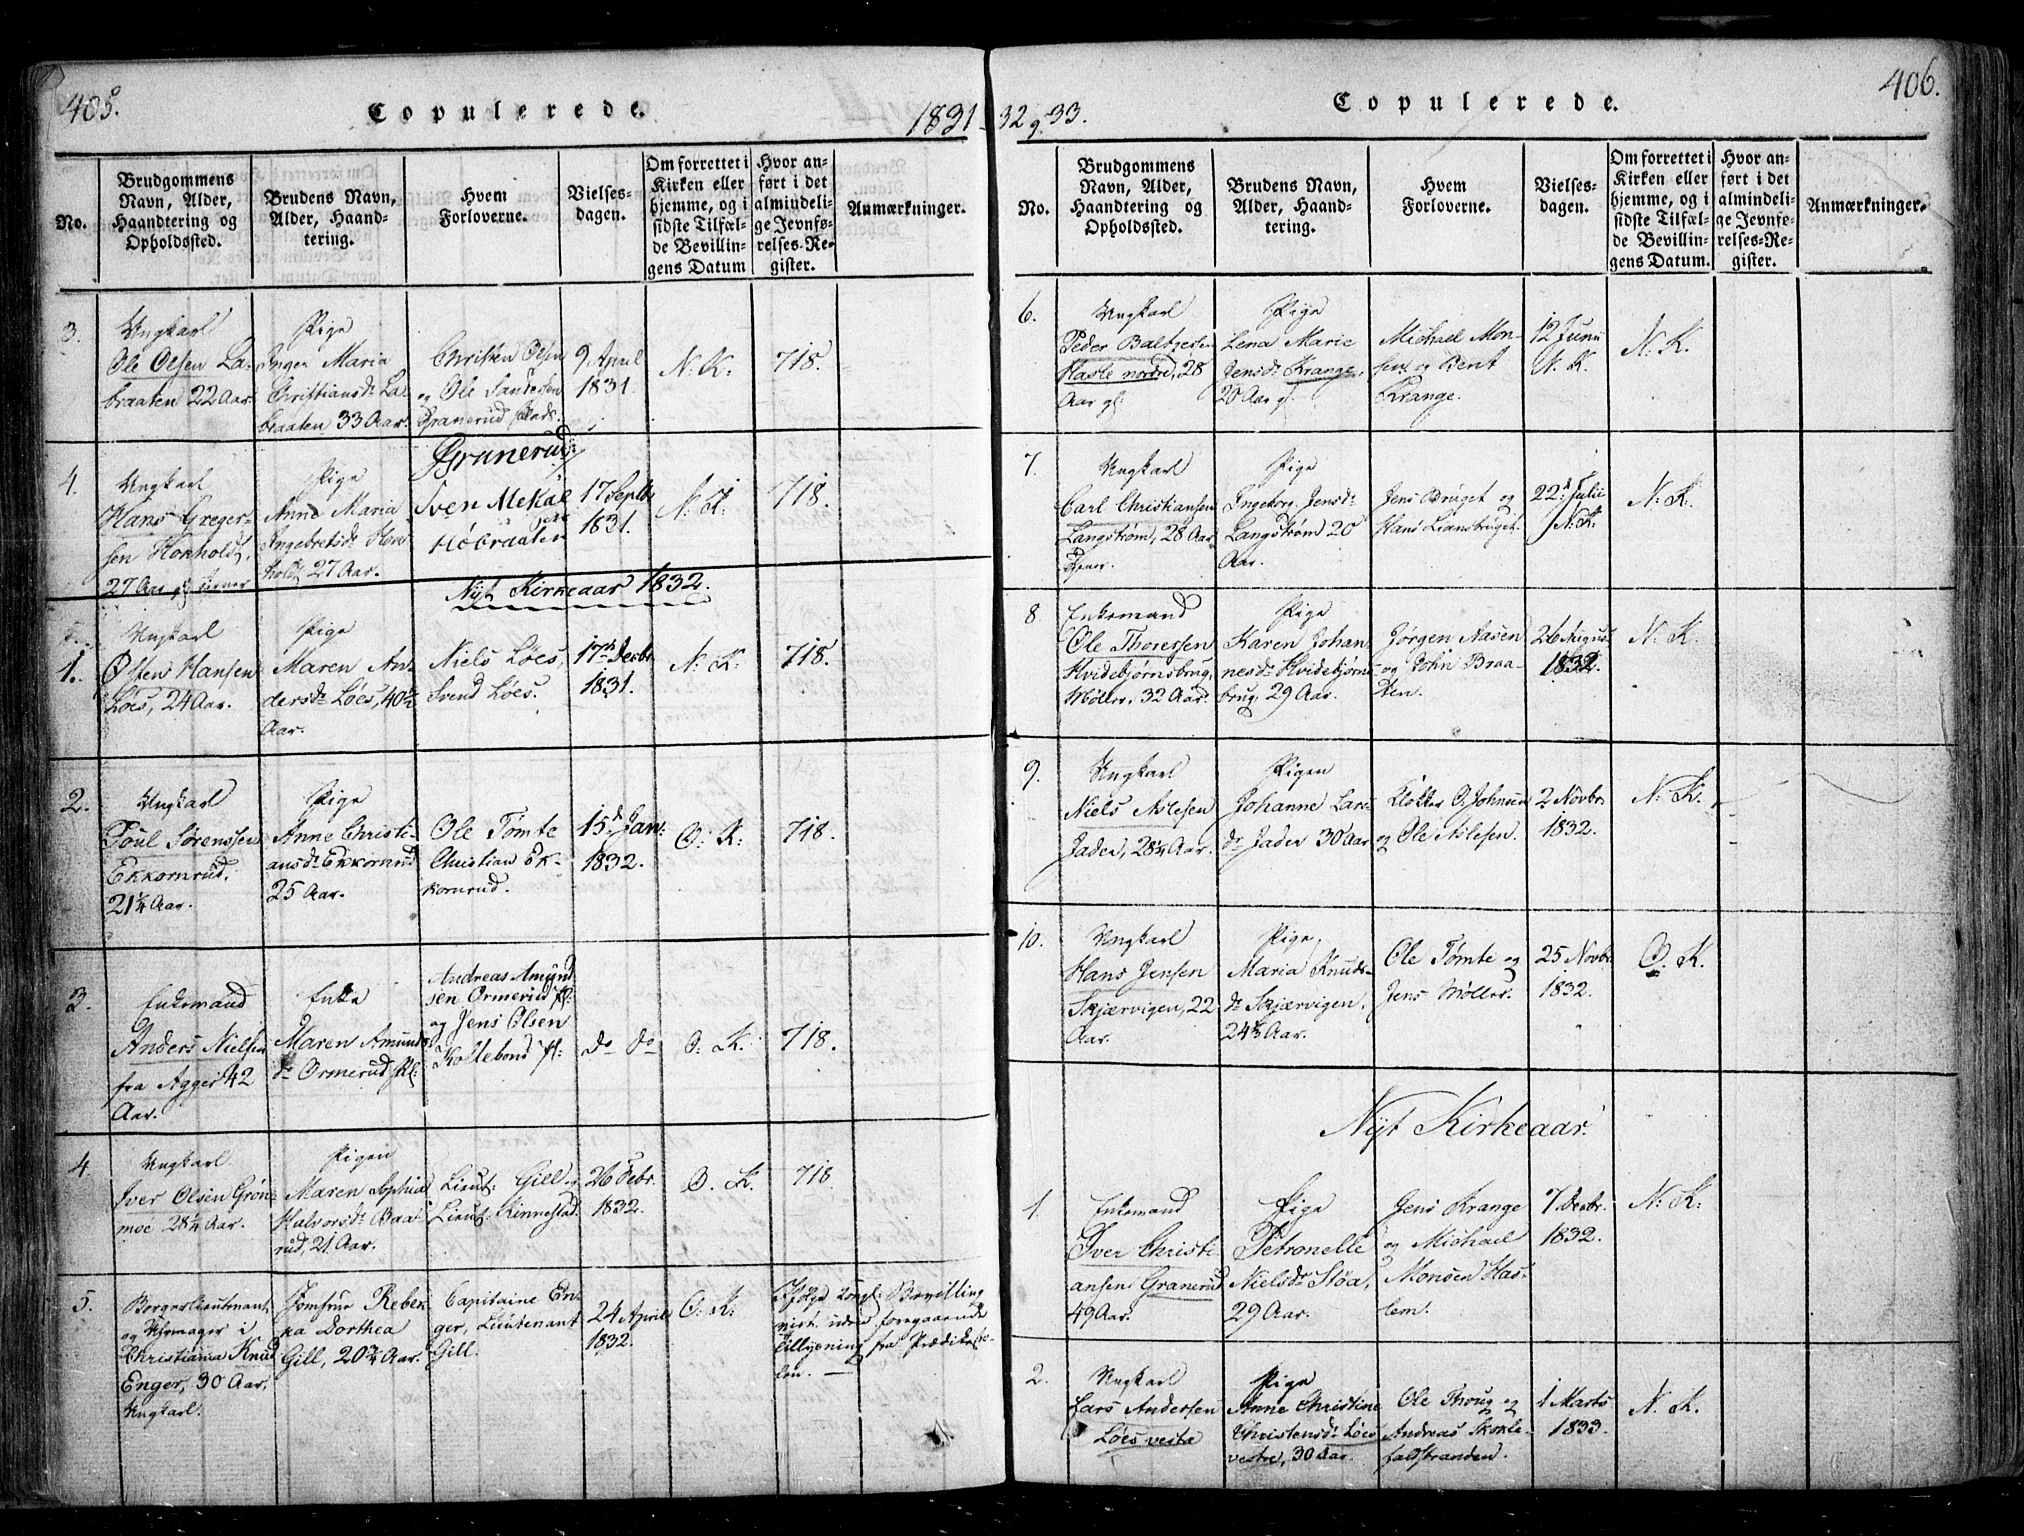 405.
Copulerede.
1831
No.
Brudgommens
Navn, Alder,
Haandtering og
Opholdssted.
Brudens Navn,
Alder, Haand-
tering.
Hvem
Forloverne.
Vielses-
dagen.
Om forrettet i
Kirken eller
hjemme, og i
sidste Tilfæl-
de Bevillin-
gens Datum
Hvor an-
ført i det
almindeli-
ge Jevnfø-
relses-Re-
gister.
Anmærkninger.
3.
Ungkarl
Ole Olsen La-
braaten 22 Aar.
Pige
Ingen Maria
Christiansdr La-
braaten 33 Aar.
Christen Olsen
og Ole
Granerud
9 April
1831.
N. K:
718.
4.
Ungkarl
Hans Greger-
sen Honhold,
27 Aar
Pige
Anne Maria
Ingebretsdr Hon-
hold 27 Aar.
Granerud:
Iven Mekal
Høbraaten
17 Septbr
1831.
N. K.
718.
Nyt Kirkeaar 1832.
1.
Ungkarl
Østen Hansen
Løes, 24 Aar.
Pige
Maren An-
dersdr Løes, 40½
Aar.
Niels Løes,
Svend Løes.
17 Decbr
1831.
N. K:
718.
2.
Ungkarl
Poul Sørenssen
Ekkornrud,
21¼ Aar.
Pige
Anne Christi-
ansdr Ekkornrud
25 Aar.
Ole Tømte
Christian Ek-
kornrud.
15d Jan:
1832.
O. K:
718.
3.
Enkemand
Anders Nielsen
fra Agger 42
Aar.
Enke
Maren Amunds
dr Ormerud
Andreas Amund
sen Ormerud
og Jens Olsen
Kollebond
Do Do
O. K.
718.
4.
Ungkarl.
Iver Olsen Grøn-
moe 28¼ Aar.
Pigen
Maren Sophia
Halvorsdr Baa-
rud, 21 Aar.
Lieut: Gill og
Lieut. Kinnestad.
26 Febr.
1832.
O. K.
718.
5.
Borgerlieutnant
og Uhrmager i
Christiania Knud
Enger, 30 Aar,
Ungkarl.
Jomfrue Rebek-
ka Dorthea
Gill, 20¾ Aar.
Capitaine En-
ger, Lieutenant
Gill.
24 April
1832.
O. K.
Ifølge kongl: Bevilling
viet uden foregaaende
Tillysning fra Prædikesto-
len. —
406.
Copulerede.
32 og 33.
No.
Brudgommens
Navn, Alder,
Haandtering og
Opholdssted.
Brudens Navn,
Alder, Haand-
tering.
Hvem
Forloverne.
Vielses-
dagen.
Om forrettet i
Kirken eller
hjemme, og i
sidste Tilfæl-
de Bevillin-
gens Datum.
Hvor an-
ført i det
almindeli-
ge Jevnfø-
relses-Re-
gister.
Anmærkninger.
6.
Ungkarl
Peder Baltzersen
Hasle nordre, 28
Aar gl.
Pige
Lena Marie
Jensdr Krange,
20 Aar gl.
Michael Mon-
sen og Bent
Krange.
12 Junii
N. K.
N. K.
7.
Ungkarl
Carl Christiansen
Langstrøm, 28 Aar
Tjener.
Pige
Ingeborg Jensdr
Langstrøm 20
Aar.
Jens Bruget og
Hans Liansbruget.
22d Julii
N. K:
N. K.
8
Enkemand
Ole Thoresen
Hvidebjørnsbrug,
Møller, 32 Aar.
Pige
Karen Johan
nesdr Hvidebjørns-
brug, 29 Aar.
Jørgen Aasen
og John Braa-
ten.
26 August
1832.
N. K.
9.
Ungkarl
Niels Aslesen
Jader, 28¼ Aar.
Pigen
Johanne Lars
dr Jader 30 Aar
Klokker O: Johnsen
og Ole Aslesen.
2 Novbr.
1832.
N. K.
10.
Ungkarl
Hans Jensen
Skjærvigen, 22
Aar.
Pige
Maria Knuds-
dr Skjærvigen,
24⅔ Aar.
Ole Tømte og
Jens Møller.
25 Novbr
1832.
O. K.
Nyt Kirkeaar.
1.
Enkemand
Iver Christi-
ansen Granerud
49 Aar.
Pige
Petronelle
Nielsdr Støa,
29 Aar.
Jens Krange
og Michael
Monsen Has-
lem.
7 Decbr.
1832.
N. K:
2.
Ungkarl
Lars Andersen
Løes vestre
Pige
Anne Christine
Christensdr Løes
vestre, 30 Aar.
Ole Throug og
Andreas Skokle-
faldstranden.
1 Marts
1833.
N. K.